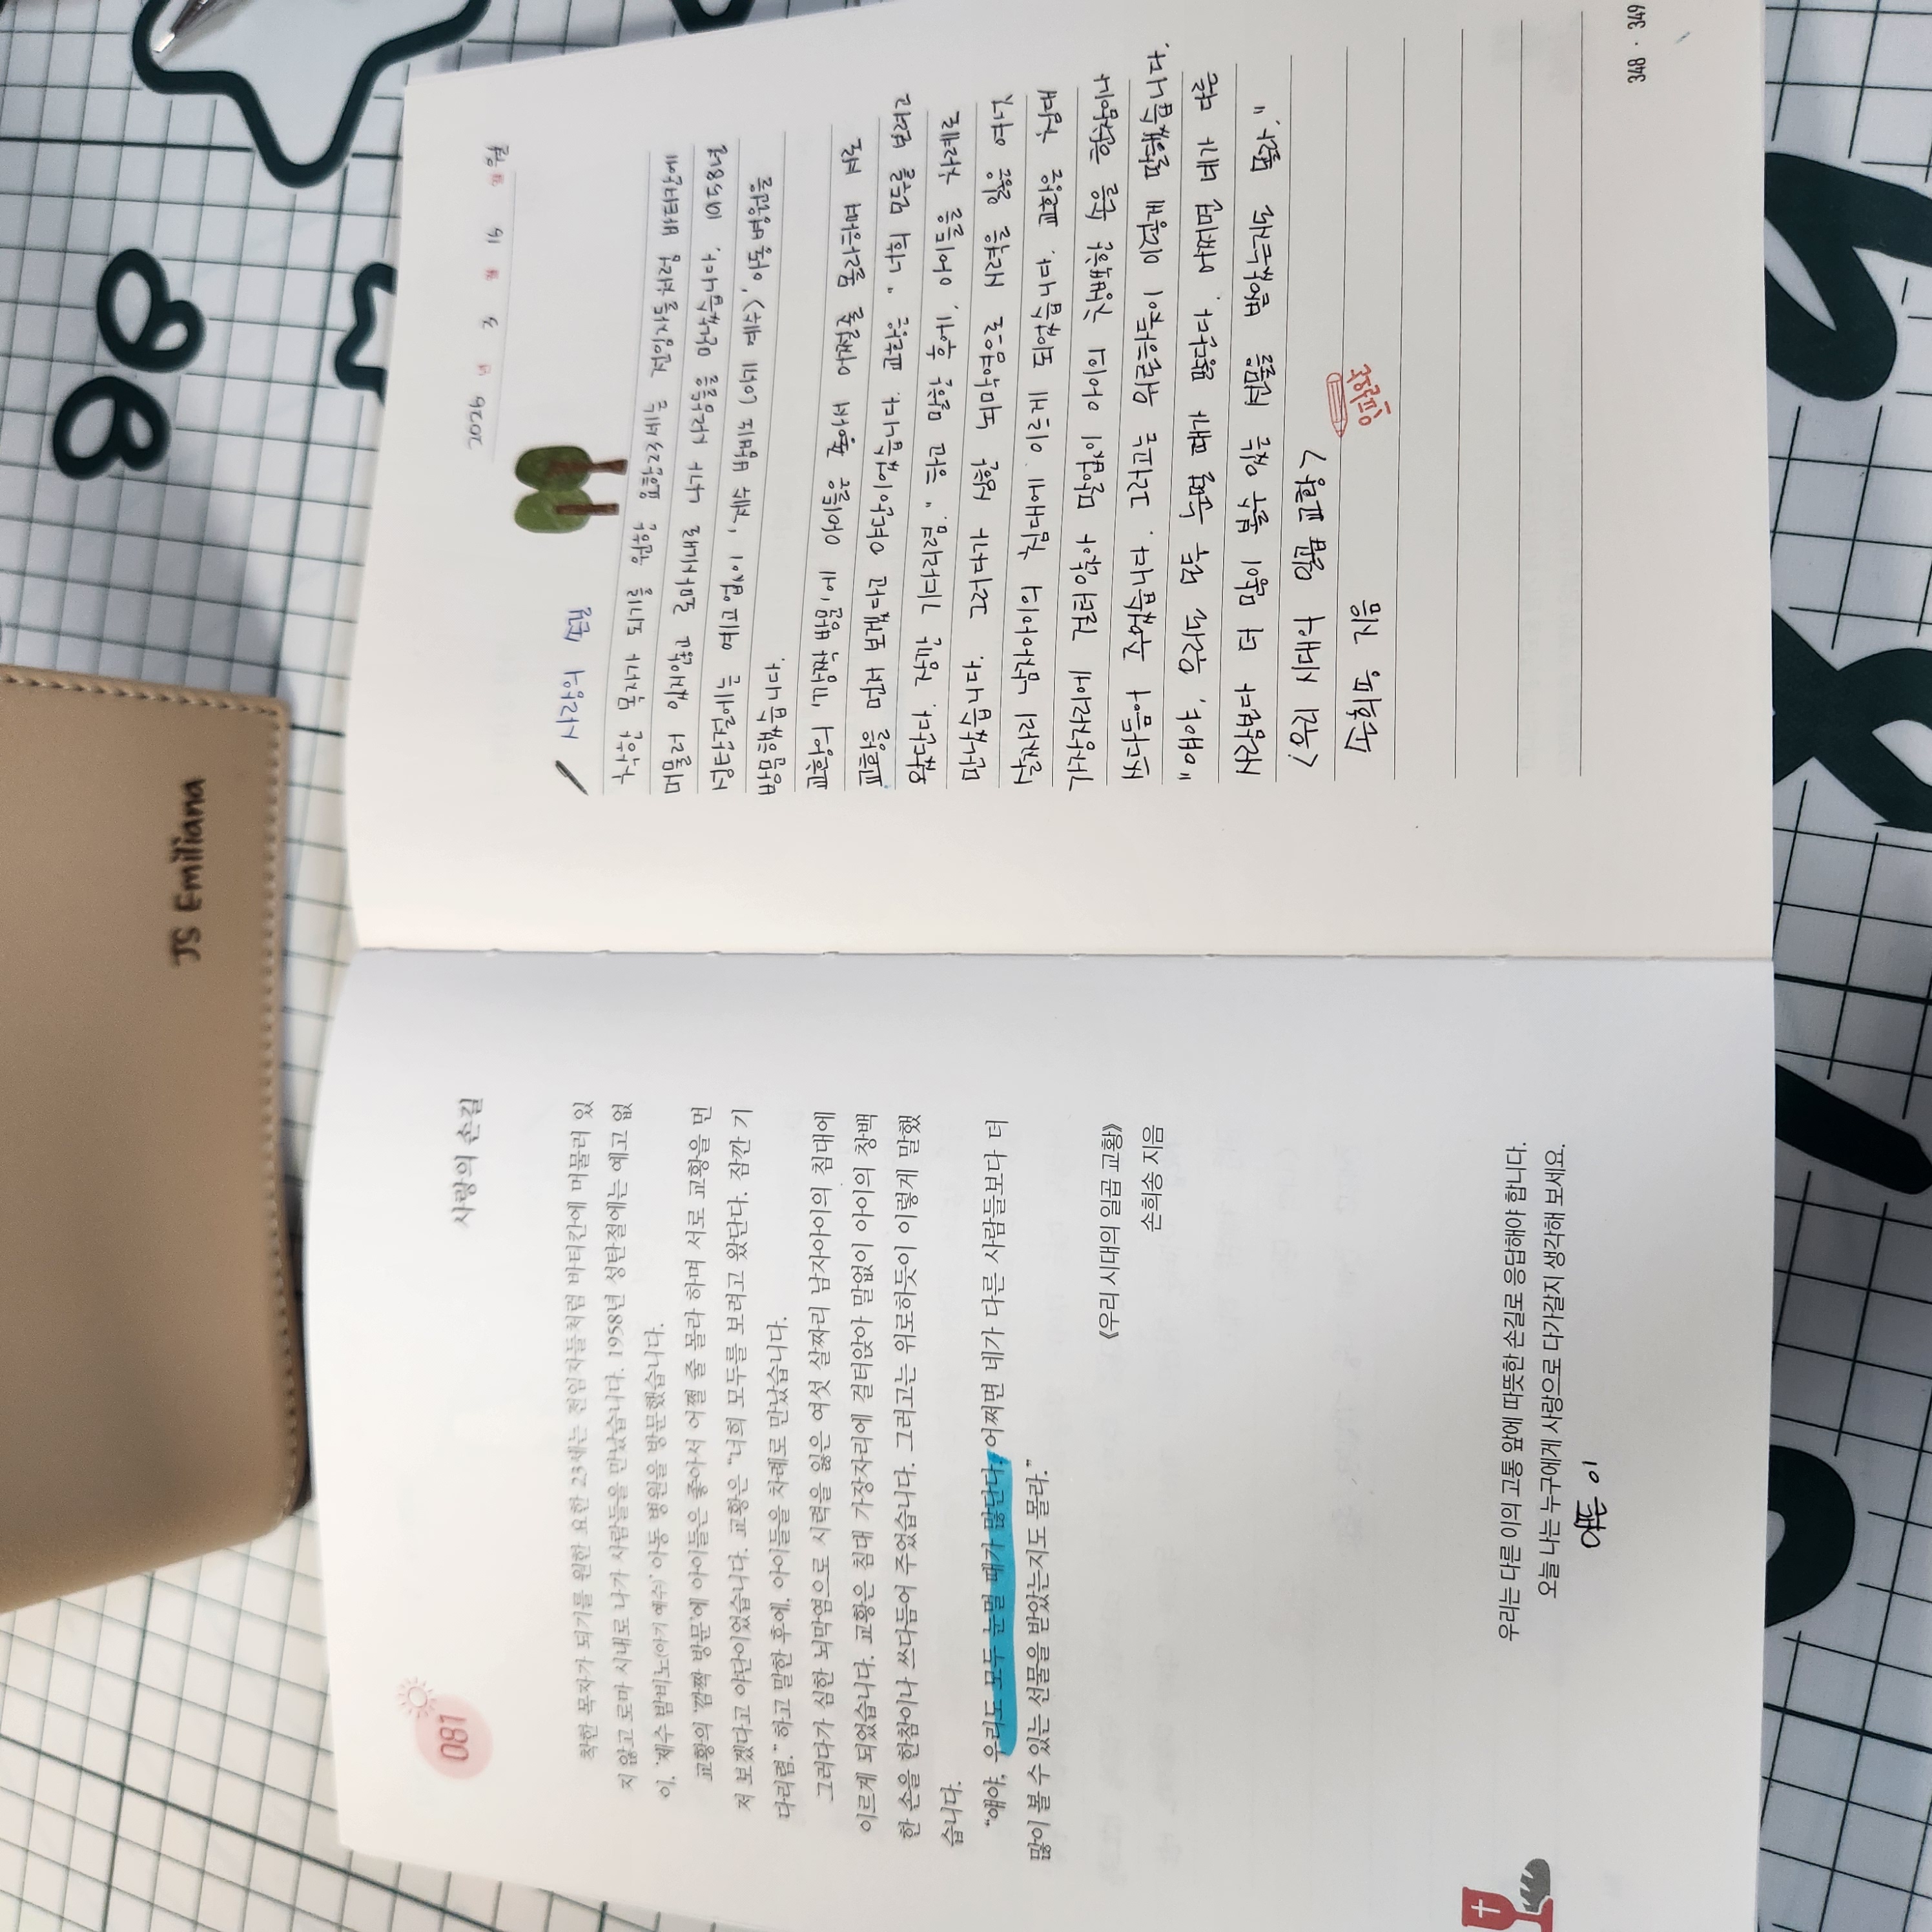 JS Emiliana
081
사랑의 손길
착한 목자가 되기를 원한 요한 23세는 전임자들처럼 바티칸에 머물러 있
지 않고 로마 시내로 나가 사람들을 만났습니다. 1958년 성탄절에는 예고 없
이, '제수 밤비노(아기 예수)' 아동 병원을 방문했습니다.
교황의 '깜짝 방문'에 아이들은 좋아서 어쩔 줄 몰라 하며 서로 교황을 먼
저 보겠다고 야단이었습니다. 교황은 "너희 모두를 보려고 왔단다. 잠깐 기
다리렴." 하고 말한 후에, 아이들을 차례로 만났습니다.
그러다가 심한 뇌막염으로 시력을 잃은 여섯 살짜리 남자아이의 침대에
이르게 되었습니다. 교황은 침대 가장자리에 걸터앉아 말없이 아이의 창백
한 손을 한참이나 쓰다듬어 주었습니다. 그러고는 위로하듯이 이렇게 말했
습니다.
"얘야, 우리도 모두 눈멀 때가 많단다. 어쩌면 네가 다른 사람들보다 더
많이 볼 수 있는 선물을 받았는지도 몰라."
《우리 시대의 일곱 교황》
손희송 지음
우리는 다른 이의 고통 앞에 따뜻한 손길로 응답해야 합니다.
오늘 나는 누구에게 사랑으로 다가갈지 생각해 보세요.
2026 년 3 월 15 일
사랑의 손길
착한 목자가 되기를 원한 요한 23세는 전임자들처럼 바티칸에
머물러 있지않고 로마시내로 나가 사람들을 만났습니다. 1958년
성탄절에는 예고없이, '제수 밤비노
방문했습니다.
교황의 '깜짝 방문'에 아이들은 좋아서 어쩔줄 몰라하며 서로
교황을 먼저 보겠다고 야단이었습니다. 교황은 "너희 모두를 보려고
왔단다. 잠깐 기다리렴." 하고 말한 후에, 아이들을 차례로
만났습니다. 그러다가 심한 뇌막염으로 시력을 잃은 여섯
살짜리 남자아이의 침대에 이르게 되었습니다. 교황은 침대
가장자리에 걸터앉아 말없이 아이의 창백한 손을 한참이나
쓰다듬어 주었습니다. 그러고는 위로하듯이 이렇게 말했습니다.
"얘야, 우리도 모두 눈멀 때가 많단다. 어쩌면 네가 다른
사람들보다 더 많이 볼 수 있는 선물을 받았는지도 몰라."
<우리 시대의 일곱 교황>
손희송 지음
348 · 349